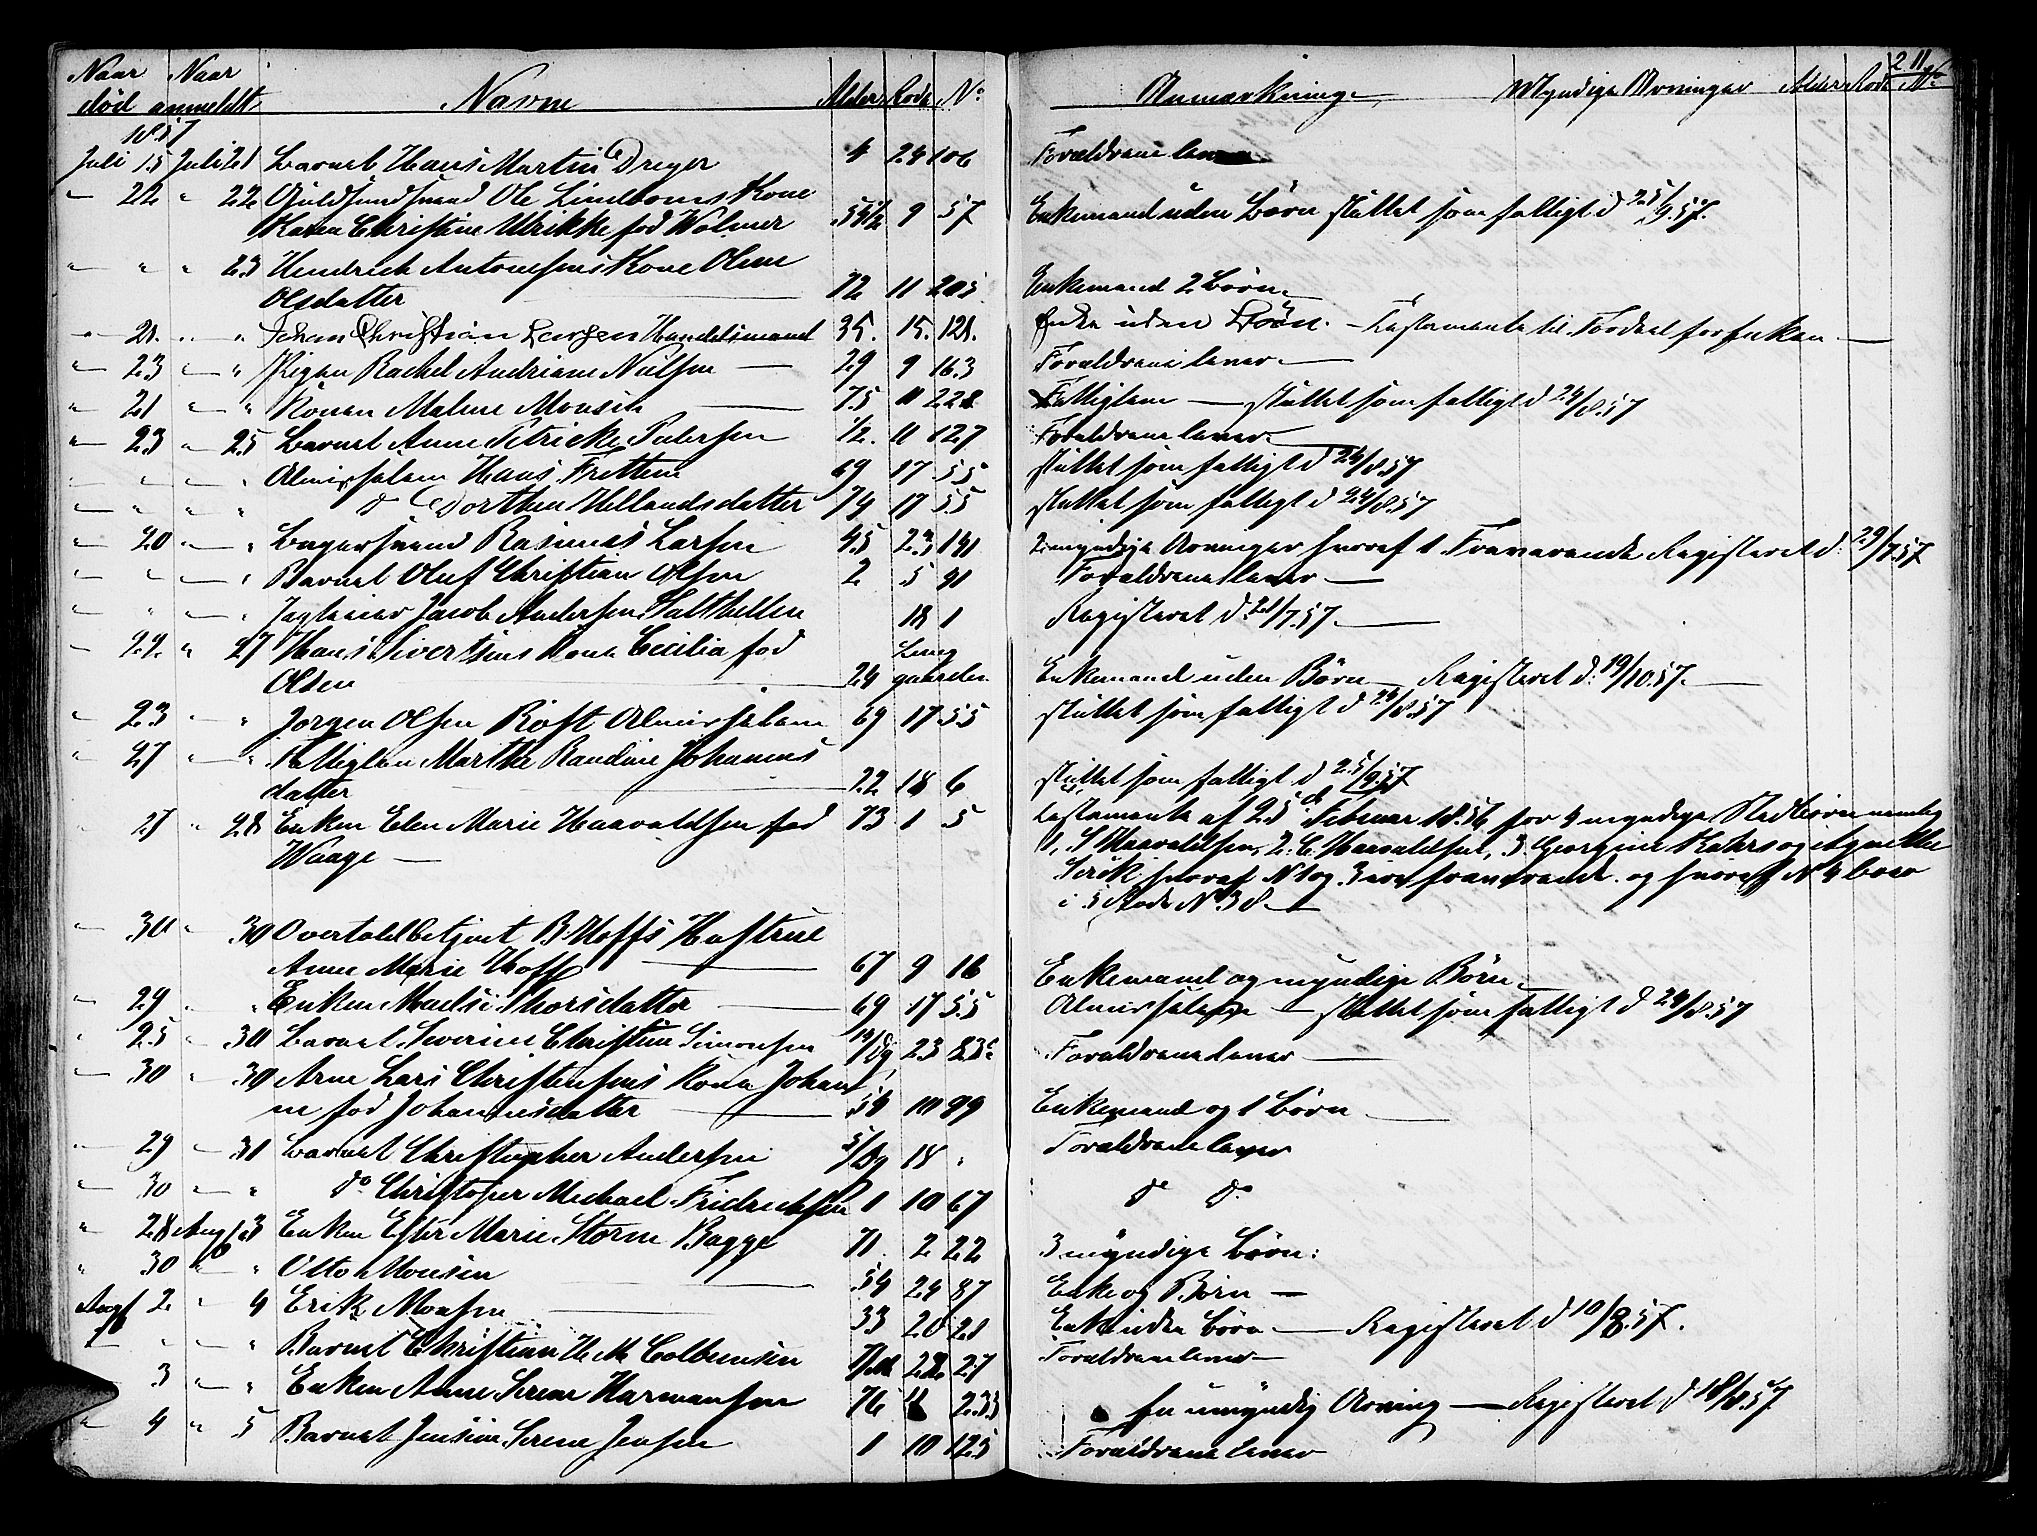 211
Naar død Naar anmeldt Navne Alder Rode No Anmærkninger Myndige Arvinger Alder Rode No
1857
Juli 15 Juli 21 Barnet Hans Martin Dreyer 4 24 106 Forældrene lever
" 22 " 22 Ole Lindboms Kone
Karen Christine Ulrikke fød Wolmer 54½ 9 57 Enkemand uden Børn sluttet som fattigt d 25/9.57.
" " " 23 Hendrich Antonesens Kone Oline
Olsdatter 72 11 205 Enkemand 2 Børn
" 21. " " Johan Christian Larsen Handelsmand 35. 15. 121. Enke uden Børn. - Testamente til Fordeel for Enken
" 23 " " Pigen Rachel Andriane Nielsen 29 9 163 Forældrene lever
" 21 " " Konen Malene Monsen 75 11 228 Fattiglem sluttet som fattigt d 24/8.57
" 23 " 25 Barnet Anne Petricke Petersen ½. 11 127 Forældrene lever
" " " " Almisselem Hans Fretten 69 17 55 sluttet som fattigt d 24/8.57
" " " " d Dorthea Hellandsdatter 74 17 55 sluttet som fattigt d 24/8.57
" 20 " " Bagersvend Rasmus Larsen 45 23 141 2 myndige Arvinger hvoraf 1 Fraværende Registeret d. 29/7.57
" " " " Barnet Oluf Christian Olsen 2 5 91 Forældrene lever
" " " " Jagteier Jacob Andersen Salthellen 18 1 Registeret d. 21/7.57.
" 22 " 27 Hans Sivertsens Kone Cecilia fød
Olsen 24 Lunggaarden Enkemand uden Børn Registeret d. 19/10.57.
" 23 " " Jørgen Olsen Røst Almisselem 69 17 55 sluttet som fattigt d 24/8.57
" 27 " " Fattiglem Marthe Randine Johannes
datter 22 18 6 sluttet som fattigt d 25/9.57
" 27 " 28 Enken Elen Marie Haavaldsen fød 73 1 5 Testamente af 25de Februar 1856 for 4 myndige Stedbørn nemlig
Waage 1, S Haavaldsen, 2. C. Haavaldsen, 3. Georgine Kahrs og Agnethe
hvoraf N 1 og 3 ere fraværende og hvoraf N 4 boer
i 3 Rode No 38.
" 30 " 30 Overtoldbetjent B. Hoffs Hustrue
Anne Marie Hoff 67 9 16 Enkemand og myndige Børn
" 29 " " Enken Madsi Thorsdatter 69 17 55 Almisselem sluttet som fattigt d 24/8.57
" 25 " 30 Barnet Severine Christine Simonsen 14/Dg 23 83c Forældrene lever
" 30 " 30 Arne Lars Christensens Kone Johan
ne fød Johannesdatter 54 10 99 Enkemand og 1 Børn
" 29 " 31 Barnet Christopher Andersen 5/Dg 18 " Forældrene lever
" 30 " " do Christopher Michael Fridrichsen 1 10 67 do do
" 28 Aug 3 Enken Ester Marie Storm Bagge 71 2 22 3 myndige Børn:
" 30 " " Otto Monsen 54 24 87 Enke og Børn
Aug 2 " 4 Erik Monsen 33 20 21 Enke uden Børn Registeret d 10/8.57.
" " " " Barnet Christian H. M. Colbensen 7/M 22 27 Forældrene lever
3 " " Enken Anne Serene Harmansen 76 233 En umyndig Arving Registeret d 18/8.57
" 4 " 5 Barnet Jensine Serene Jensen 1 10 125 Forældrene lever